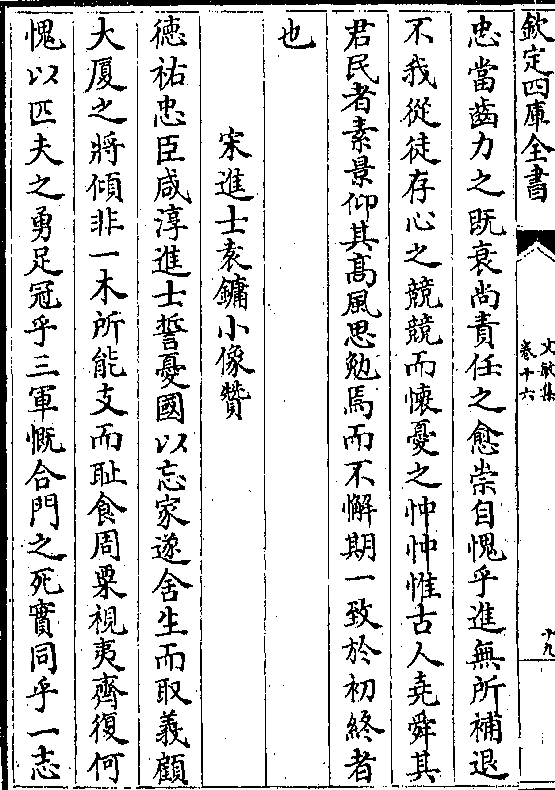 欽定四庫全書
文敏集
卷十六
十九
忠當齒力之既衰尚責任之愈崇自愧乎進無所補退
不我從徒存心之兢兢而懷憂之忡忡惟古人堯舜其
君民者素景仰其高風思勉焉而不懈期一致於初終者
也
宋進士袁鏞小像贊
徳祐忠臣咸淳進士誓憂國以忘家遂舍生而取義顧
大厦之將傾非一木所能支而耻食周粟視夷齊復何
愧以匹夫之勇足冠乎三軍慨合門之死實同乎一志